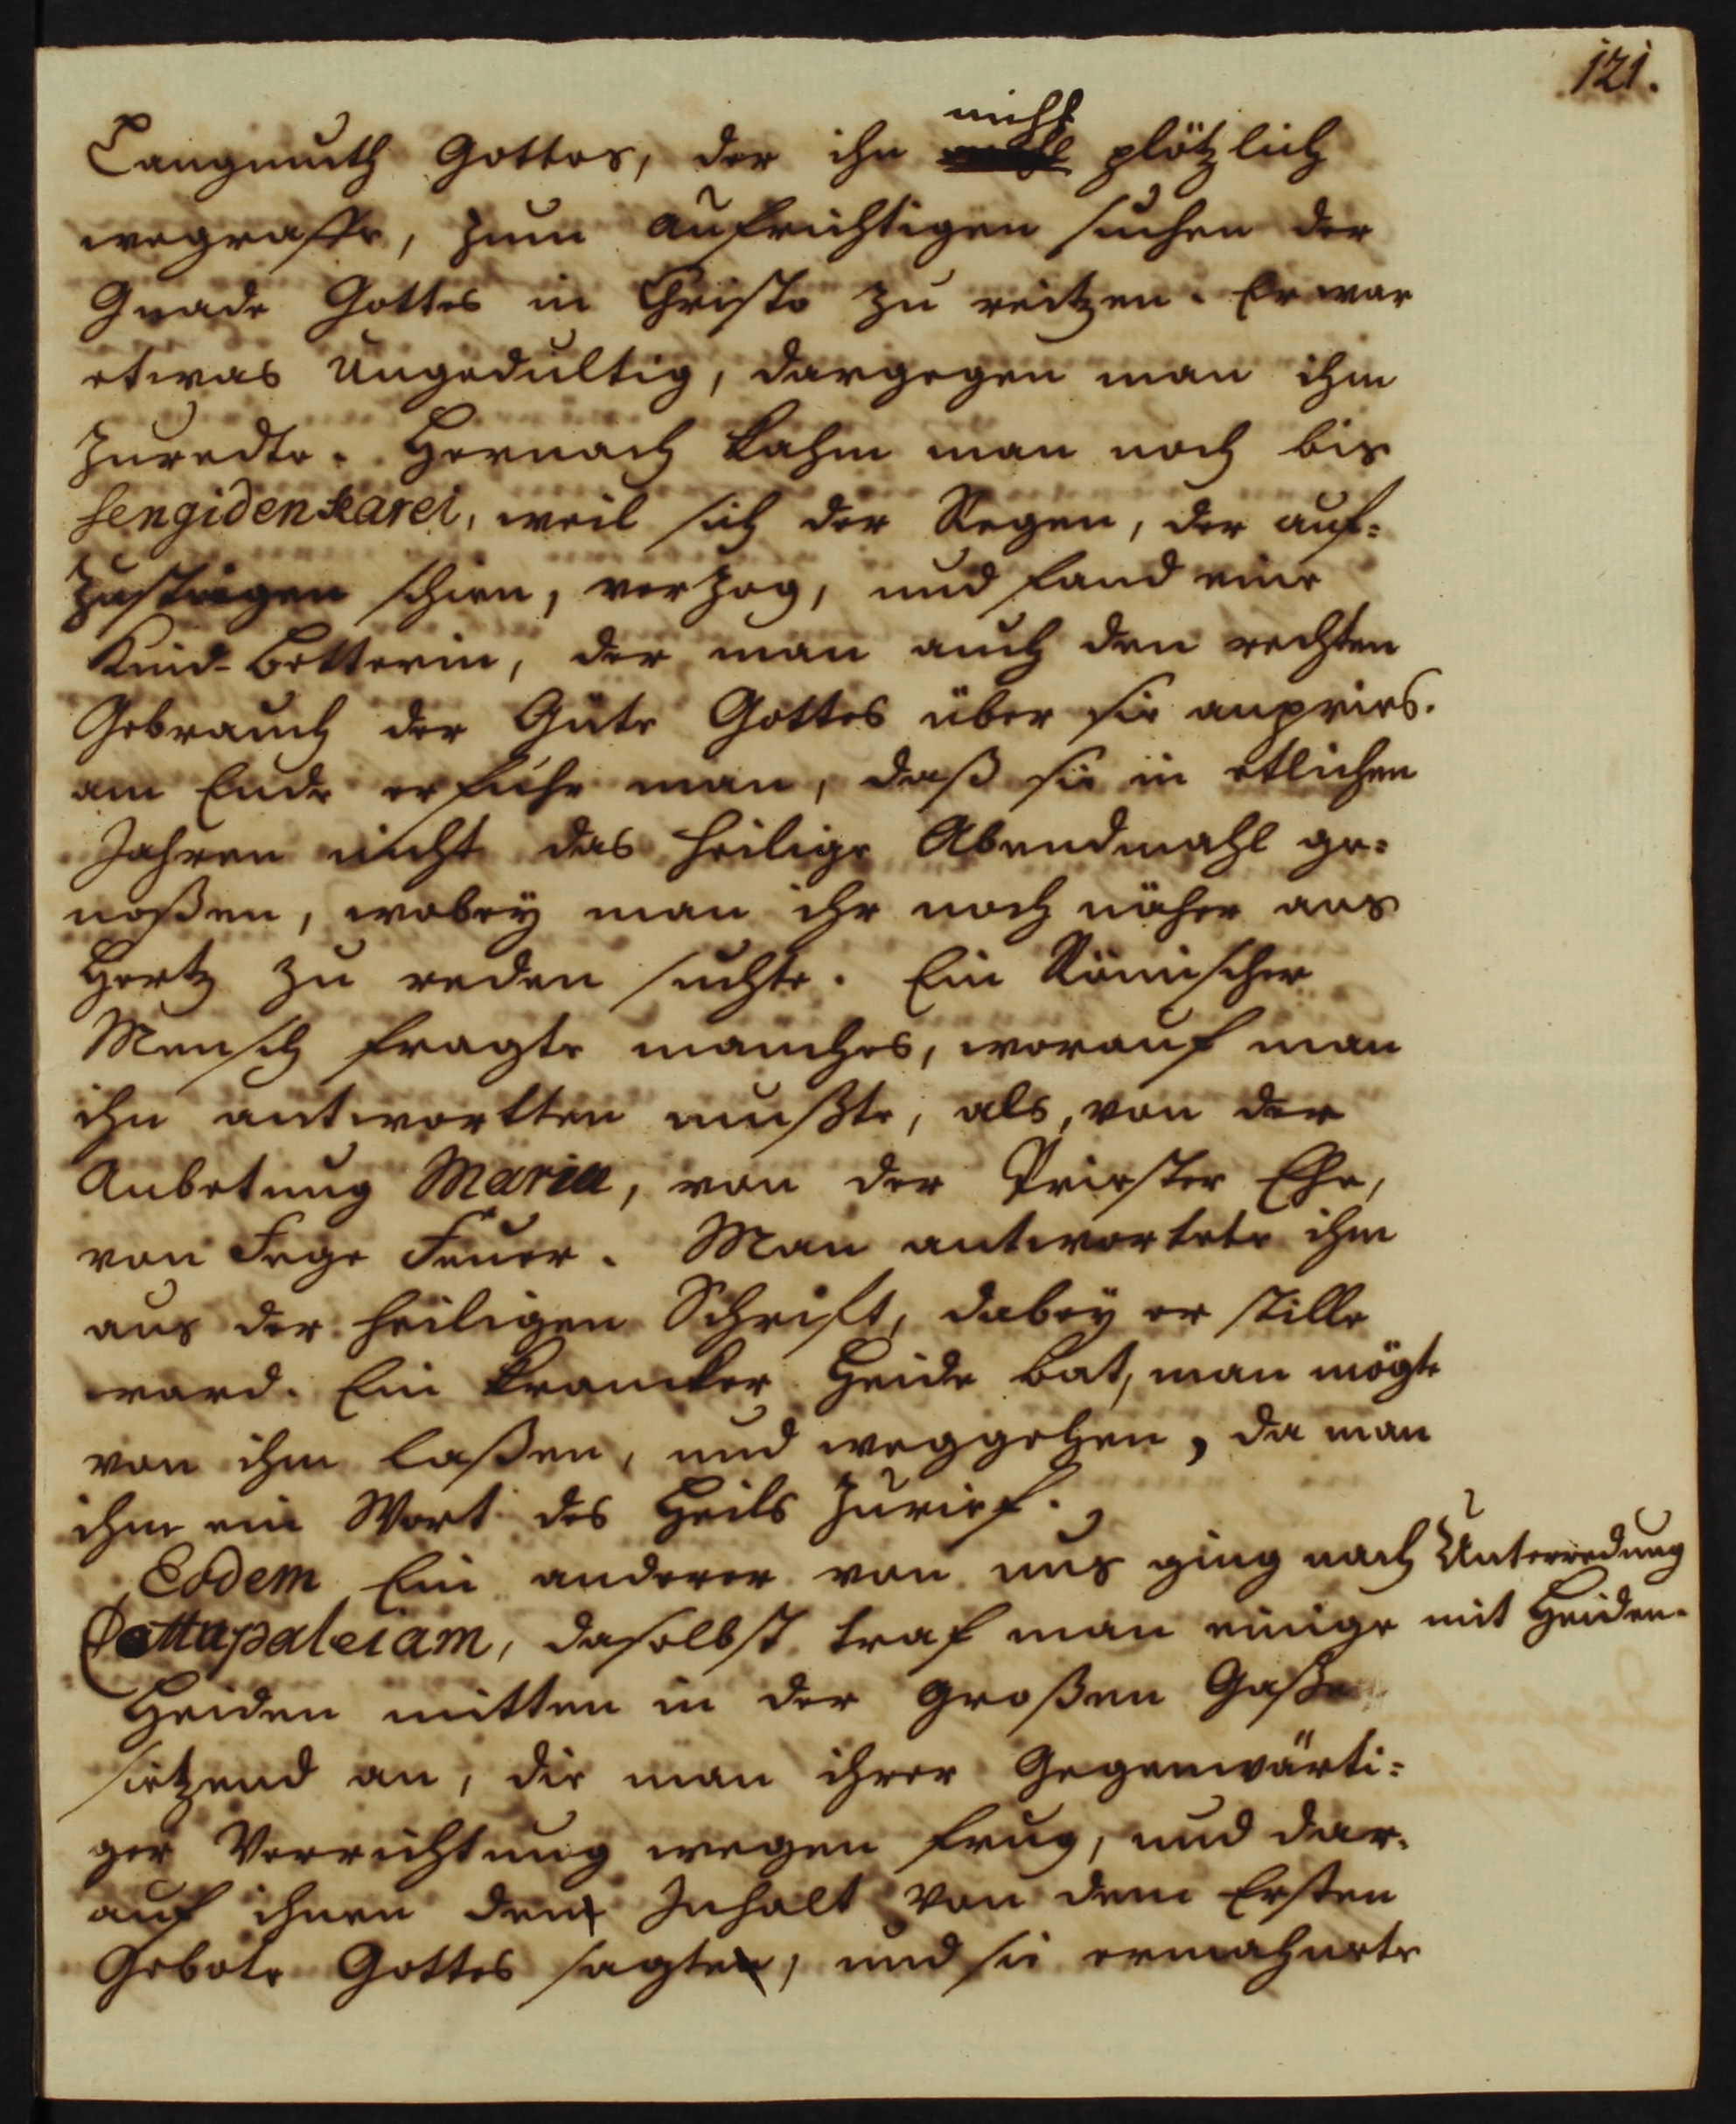 121.
Langmuth Gottes, der ihn nicht plötzlich
wegraffe, zum aufrichtigen suchen der
Gnade Gottes in Christo zu reitzen. Er war
etwas Ungedultig, dargegen man ihm
zuredte. Hernach kahm man noch bis
Sengidenkarei, weil sich der Regen, der auf=
zusteigen schien, verzog, und fand eine
Kind-Betterin, der man auch den rechten
Gebrauch der Güte Gottes über sie anpries.
am Ende erfuhr man, daß sie in etlichen
Jahren nicht das heilige Abendmahl ge=
noßen, wobey man ihr noch näher ans
Hertz zu reden suchte. Ein Römischer
Mensch fragte manches, worauf man
ihn antwortten mußte, als, von der
Anbetung Maria, von der Priester Ehe,
von Fege Feuer. Man antwortete ihm
aus der heiligen Schrift, dabey er stille
ward. Ein krancker Heide bat, man mögte
von ihm laßen, und weggehen, da man
ihm ein Wort des Heils zurief.
Eodem Ein anderer von uns ging nach
Pottupaleiam, daselbst traf man einige
Heiden mitten in der großen Gaße
sitzend an, die man ihrer Gegenwärti=
ger Verrichtung wegen frug, und dar=
auf ihnen den Inhalt von dem Ersten
Gebote Gottes sagte, und sie ermahnete
Unterredung
mit Heiden.